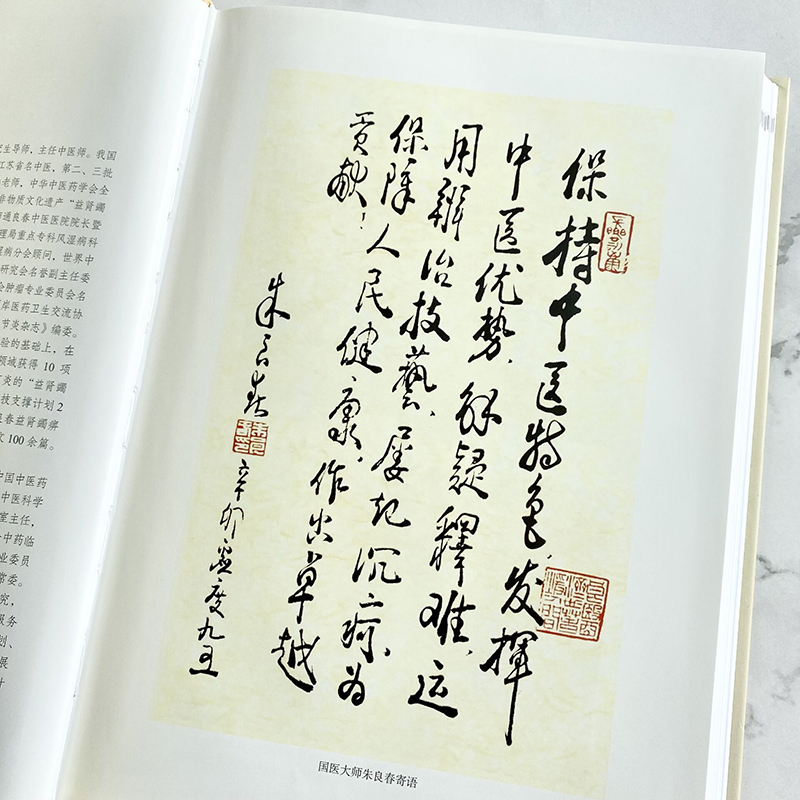 生导师，主任中医师。我国
江苏省名中医，第二、三批
老师，中华中医药学会全
非物质文化遗产“益肾蠲
通良春中医医院院长暨
理局重点专科风湿病科
湿病分会顾问，世界中
研究会名誉副主任委
会肿瘤专业委员会名
岸医药卫生交流协
节炎杂志》编委。
验的基础上，在
领域获得 10 项
炎的“益肾蠲
技支撑计划 2
良春益肾蠲痹
文 100 余篇。
中国中医药
中医科学
室主任，
中药临
业委员
常委。
究，
服务
划、
展
计
保持中医特色，发挥
中医优势、解疑釋难、运
用辨治技藝、屡起沉疴、为
保障人民健康、作出卓越
贡献！
朱良春
辛卯虚度九五
国医大师朱良春寄语